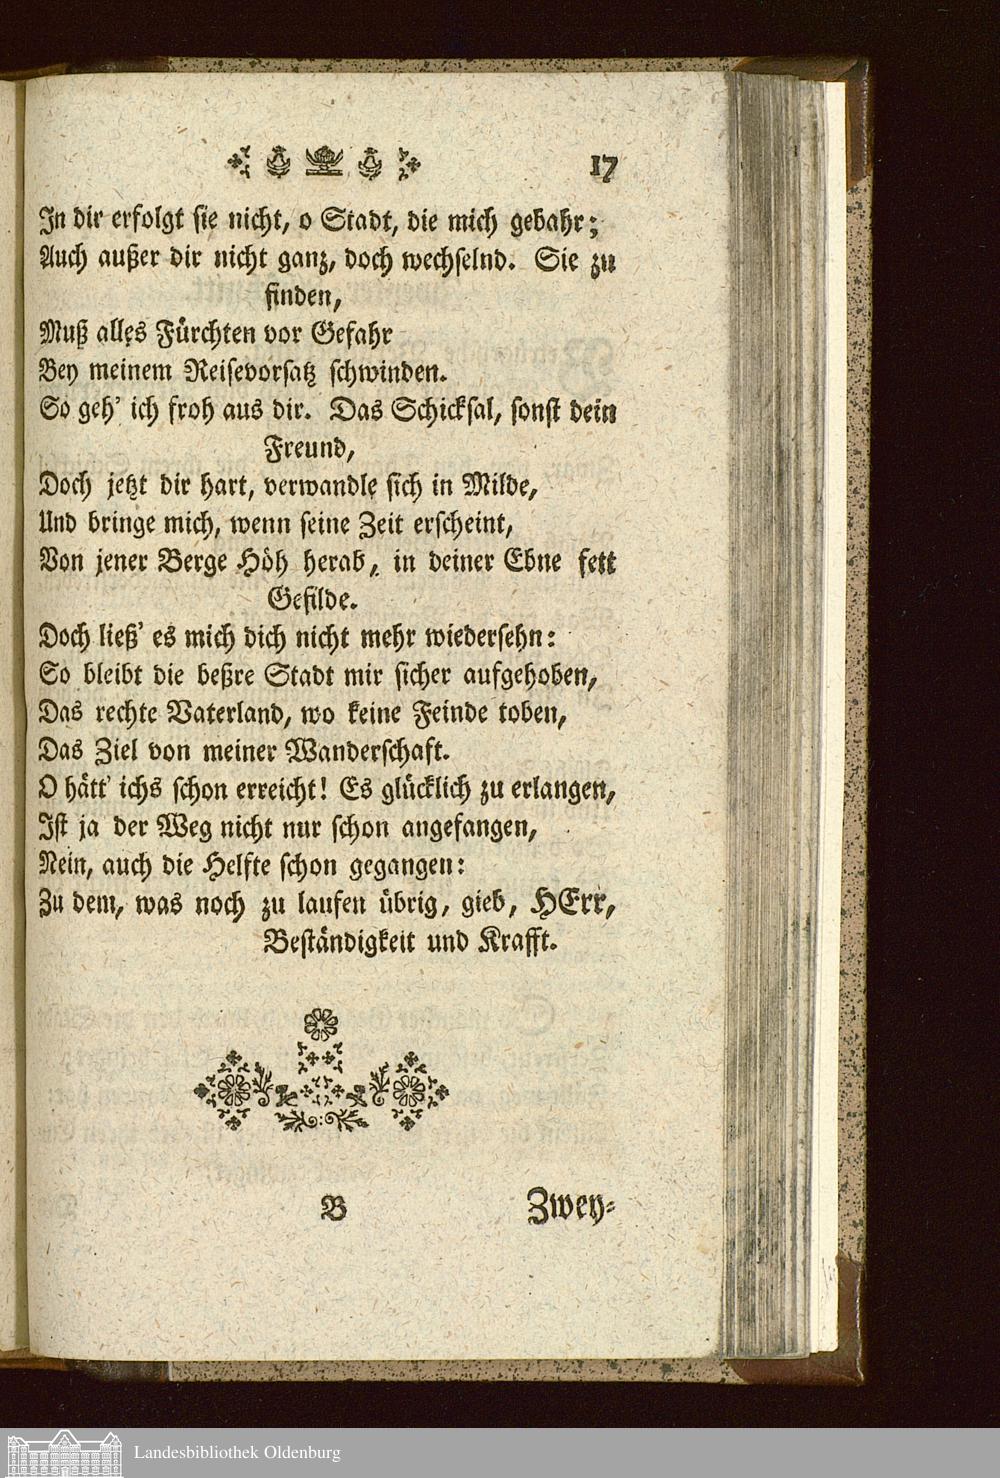 17
In dir erfolgt sie nicht, o Stadt, die mich gebahr;
Auch außer dir nicht ganz, doch wechselnd. Sie zu
finden,
Muß alles Fürchten vor Gefahr
Bey meinem Reisevorsatz schwinden.
So geh' ich froh aus dir. Das Schicksal, sonst dein
Freund,
Doch jetzt dir hart, verwandle sich in Milde,
Und bringe mich, wenn seine Zeit erscheint,
Von jener Berge Höh herab, in deiner Ebne fett
Gefilde.
Doch ließ' es mich dich nicht mehr wiedersehn:
So bleibt die beßre Stadt mir sicher aufgehoben,
Das rechte Vaterland, wo keine Feinde toben,
Das Ziel von meiner Wanderschaft.
O hätt' ichs schon erreicht! Es glücklich zu erlangen,
Ist ja der Weg nicht nur schon angefangen,
Nein, auch die Helfte schon gegangen:
Zu dem, was noch zu laufen übrig, gieb, HErr,
Beständigkeit und Krafft.
B Zwey-
Landesbibliothek Oldenburg